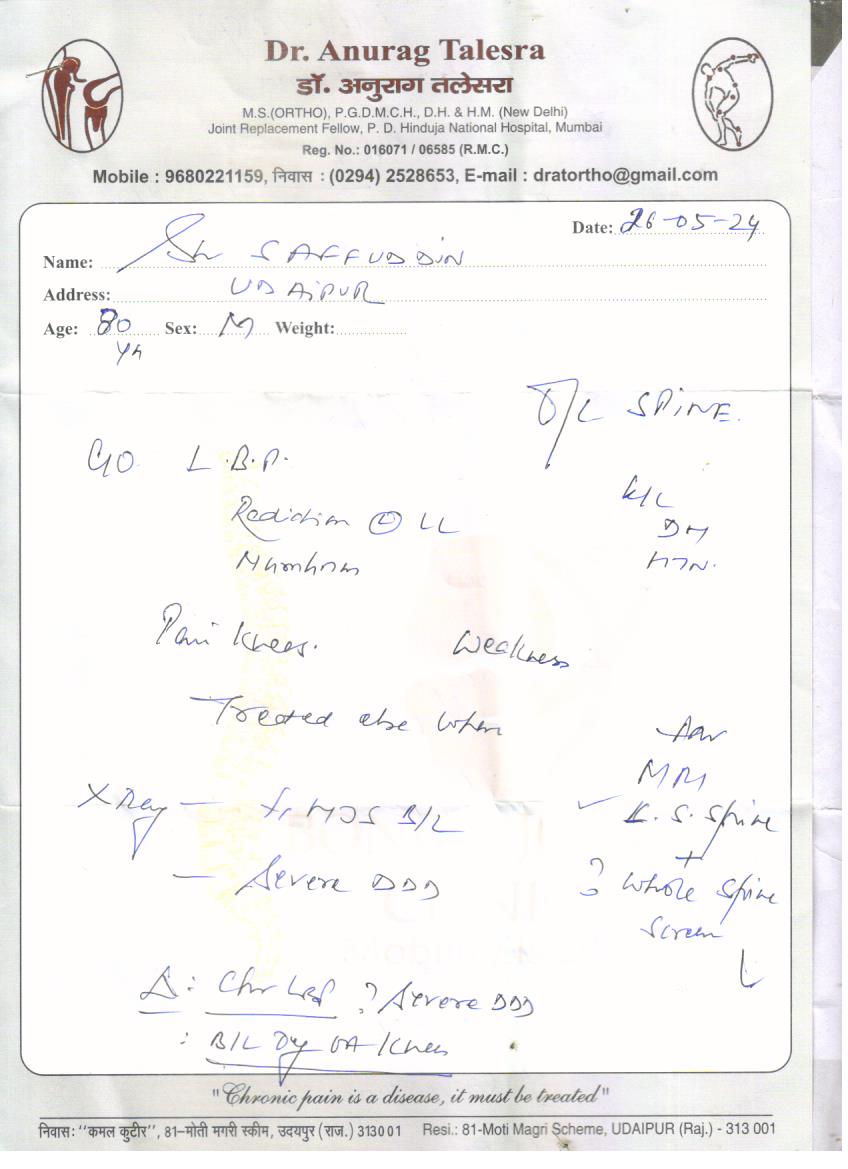 Dr. Anurag Talesra
डॉ. अनुराग तलेसरा
M.S.(ORTHO), P.G.D.M.C.H., D.H. & H.M. (New Delhi)
Joint Replacement Fellow, P. D. Hinduja National Hospital, Mumbai
Reg. No.: 016071 / 06585 (R.M.C.)
Mobile : 9680221159, निवास : (0294) 2528653, E-mail : dratortho@gmail.com
Date: 26-05-24
Name: Sh SAFFUDDIN
Address: UDAIPUR
Age: 80 Sex: M Weight:
yr
L SPINE.
C/O L.B.P.
K/C
Radiation L LL
DM
HTN.
Pain Knees. Weakness
Treated else when
Adv
MRI
X Ray - B/L
L. S. Spine
+
- Severe DDD
? Whole Spine
Screen
Δ: Chr LBP ? Severe DDD
: B/L OA Knees
"Chronic pain is a disease, it must be treated"
निवास: "कमल कुटीर", 81-मोती मगरी स्कीम, उदयपुर (राज.) 313001 Resi.: 81-Moti Magri Scheme, UDAIPUR (Raj.) - 313 001